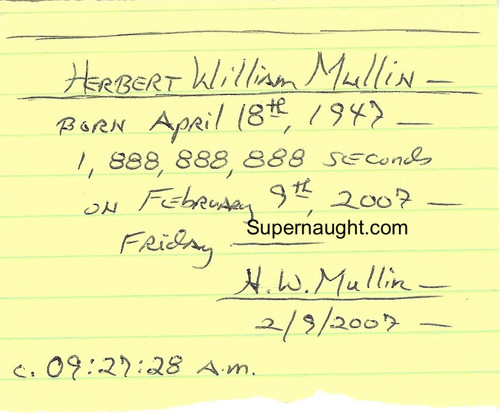 HERBERT William Mullin —
BORN April 18th, 1947 —
1,888,888,888 seconds
ON February 9th, 2007 —
Supernaught.com
Friday
H.W. Mullin —
2/9/2007 —
c. 09:27:28 A.m.